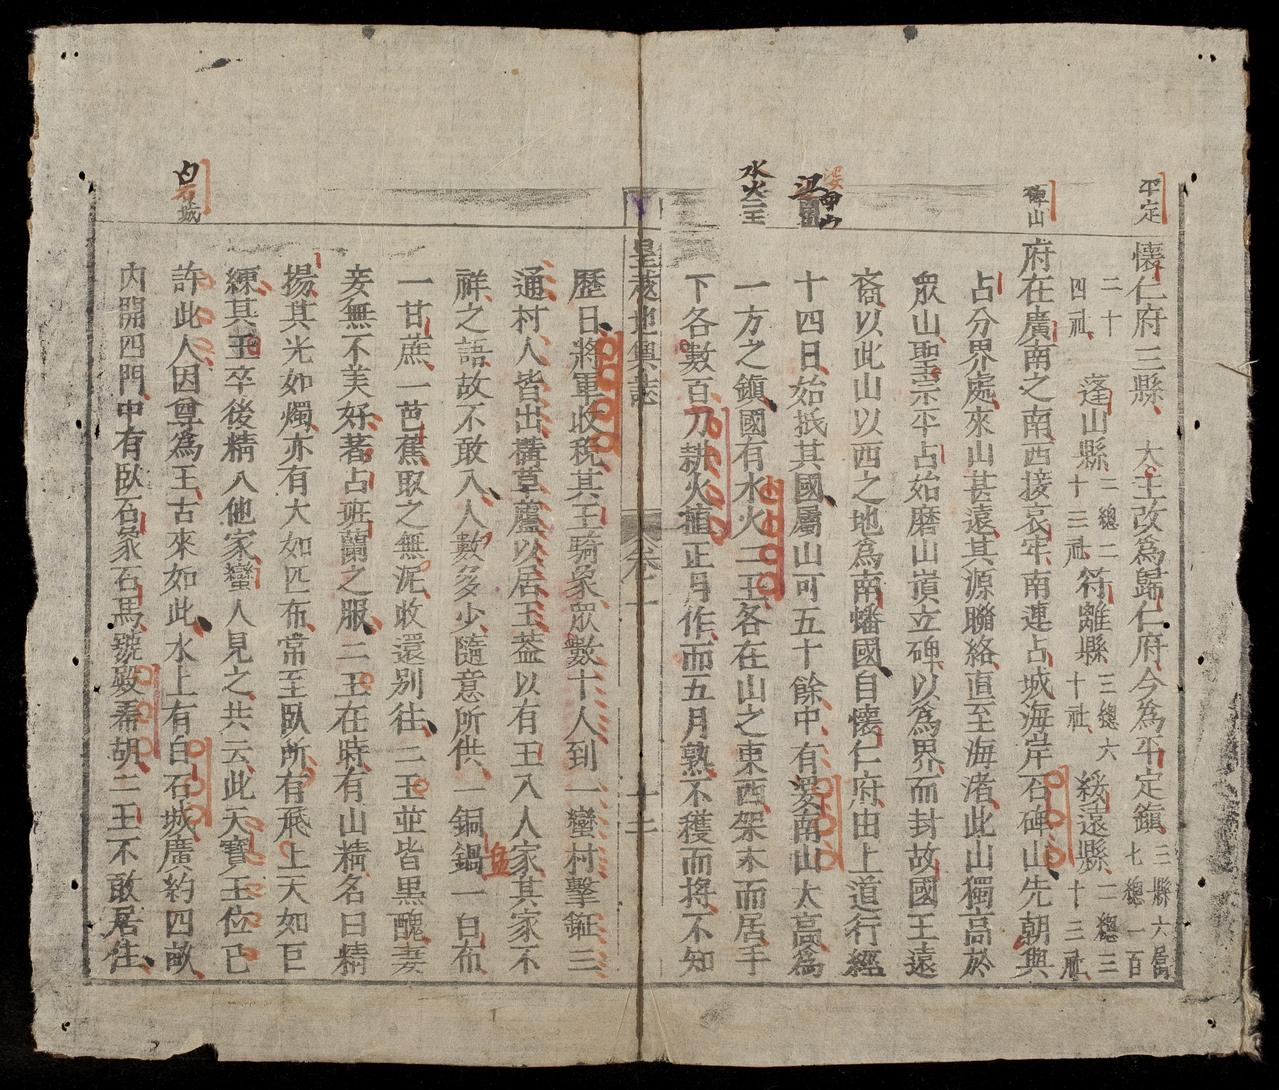 平定
懷仁府三縣大王改為歸仁府今為平定鎮三縣六屬七總一百
二十四社蓬山縣二總二十三社符離縣三總六十社綏遠縣二總三十三社
碑山
府在廣南之南西接哀牢南連占城海岸石碑山先朝與
占分界處來山甚遠其源聯絡直至海渚此山獨高於
眾山聖宗平占始磨山嵿立碑以為界而封故國王遠
裔以此山以西之地為南蟠國自懷仁府由上道行經
十四日始抵其國屬山可五十餘中有婆南山太高為
水火王
一方之鎮國有水火二王各在山之東西架木而居手
下各數百刀耕火植正月作而五月熟不穫而將不知
皇越地輿誌
卷一
十二
歷日將軍收稅其王騎象眾數十人到一蠻村擊鉦三
通村人皆出構草蘆以居王蓋以有王入人家其家不
祥之語故不敢入人數多少隨意所供一銅鍋一白布
一甘蔗一芭蕉取之無泥收還別往二王並皆黑醜妻
妾無不美好著占班蘭之服二王在時有山精名曰精
揚其光如燭亦有大如匹布常至臥所有飛上天如巨
練其王卒後精入他家蠻人見之共云此天寶王位已
許此人因尊為王古來如此水上有白石城廣約四畝
白石城
內開四門中有臥石象石馬號殿希胡二王不敢居住